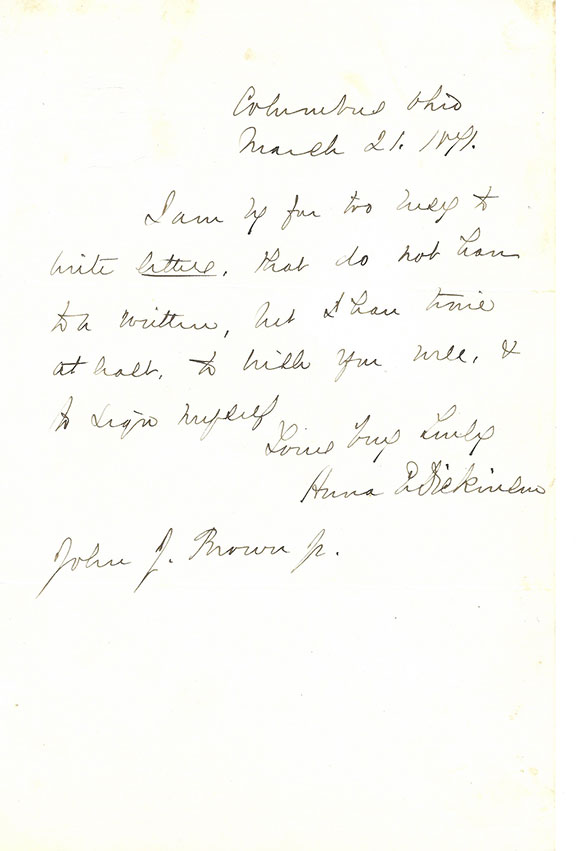 Columbus Ohio
March 21. 1871.
I am by far too busy to
write letters, that do not have
to be written, but I have time
at least, to wish you well, &
to sign myself
Yours very truly
Anna E Dickinson
John J. Brown Jr.